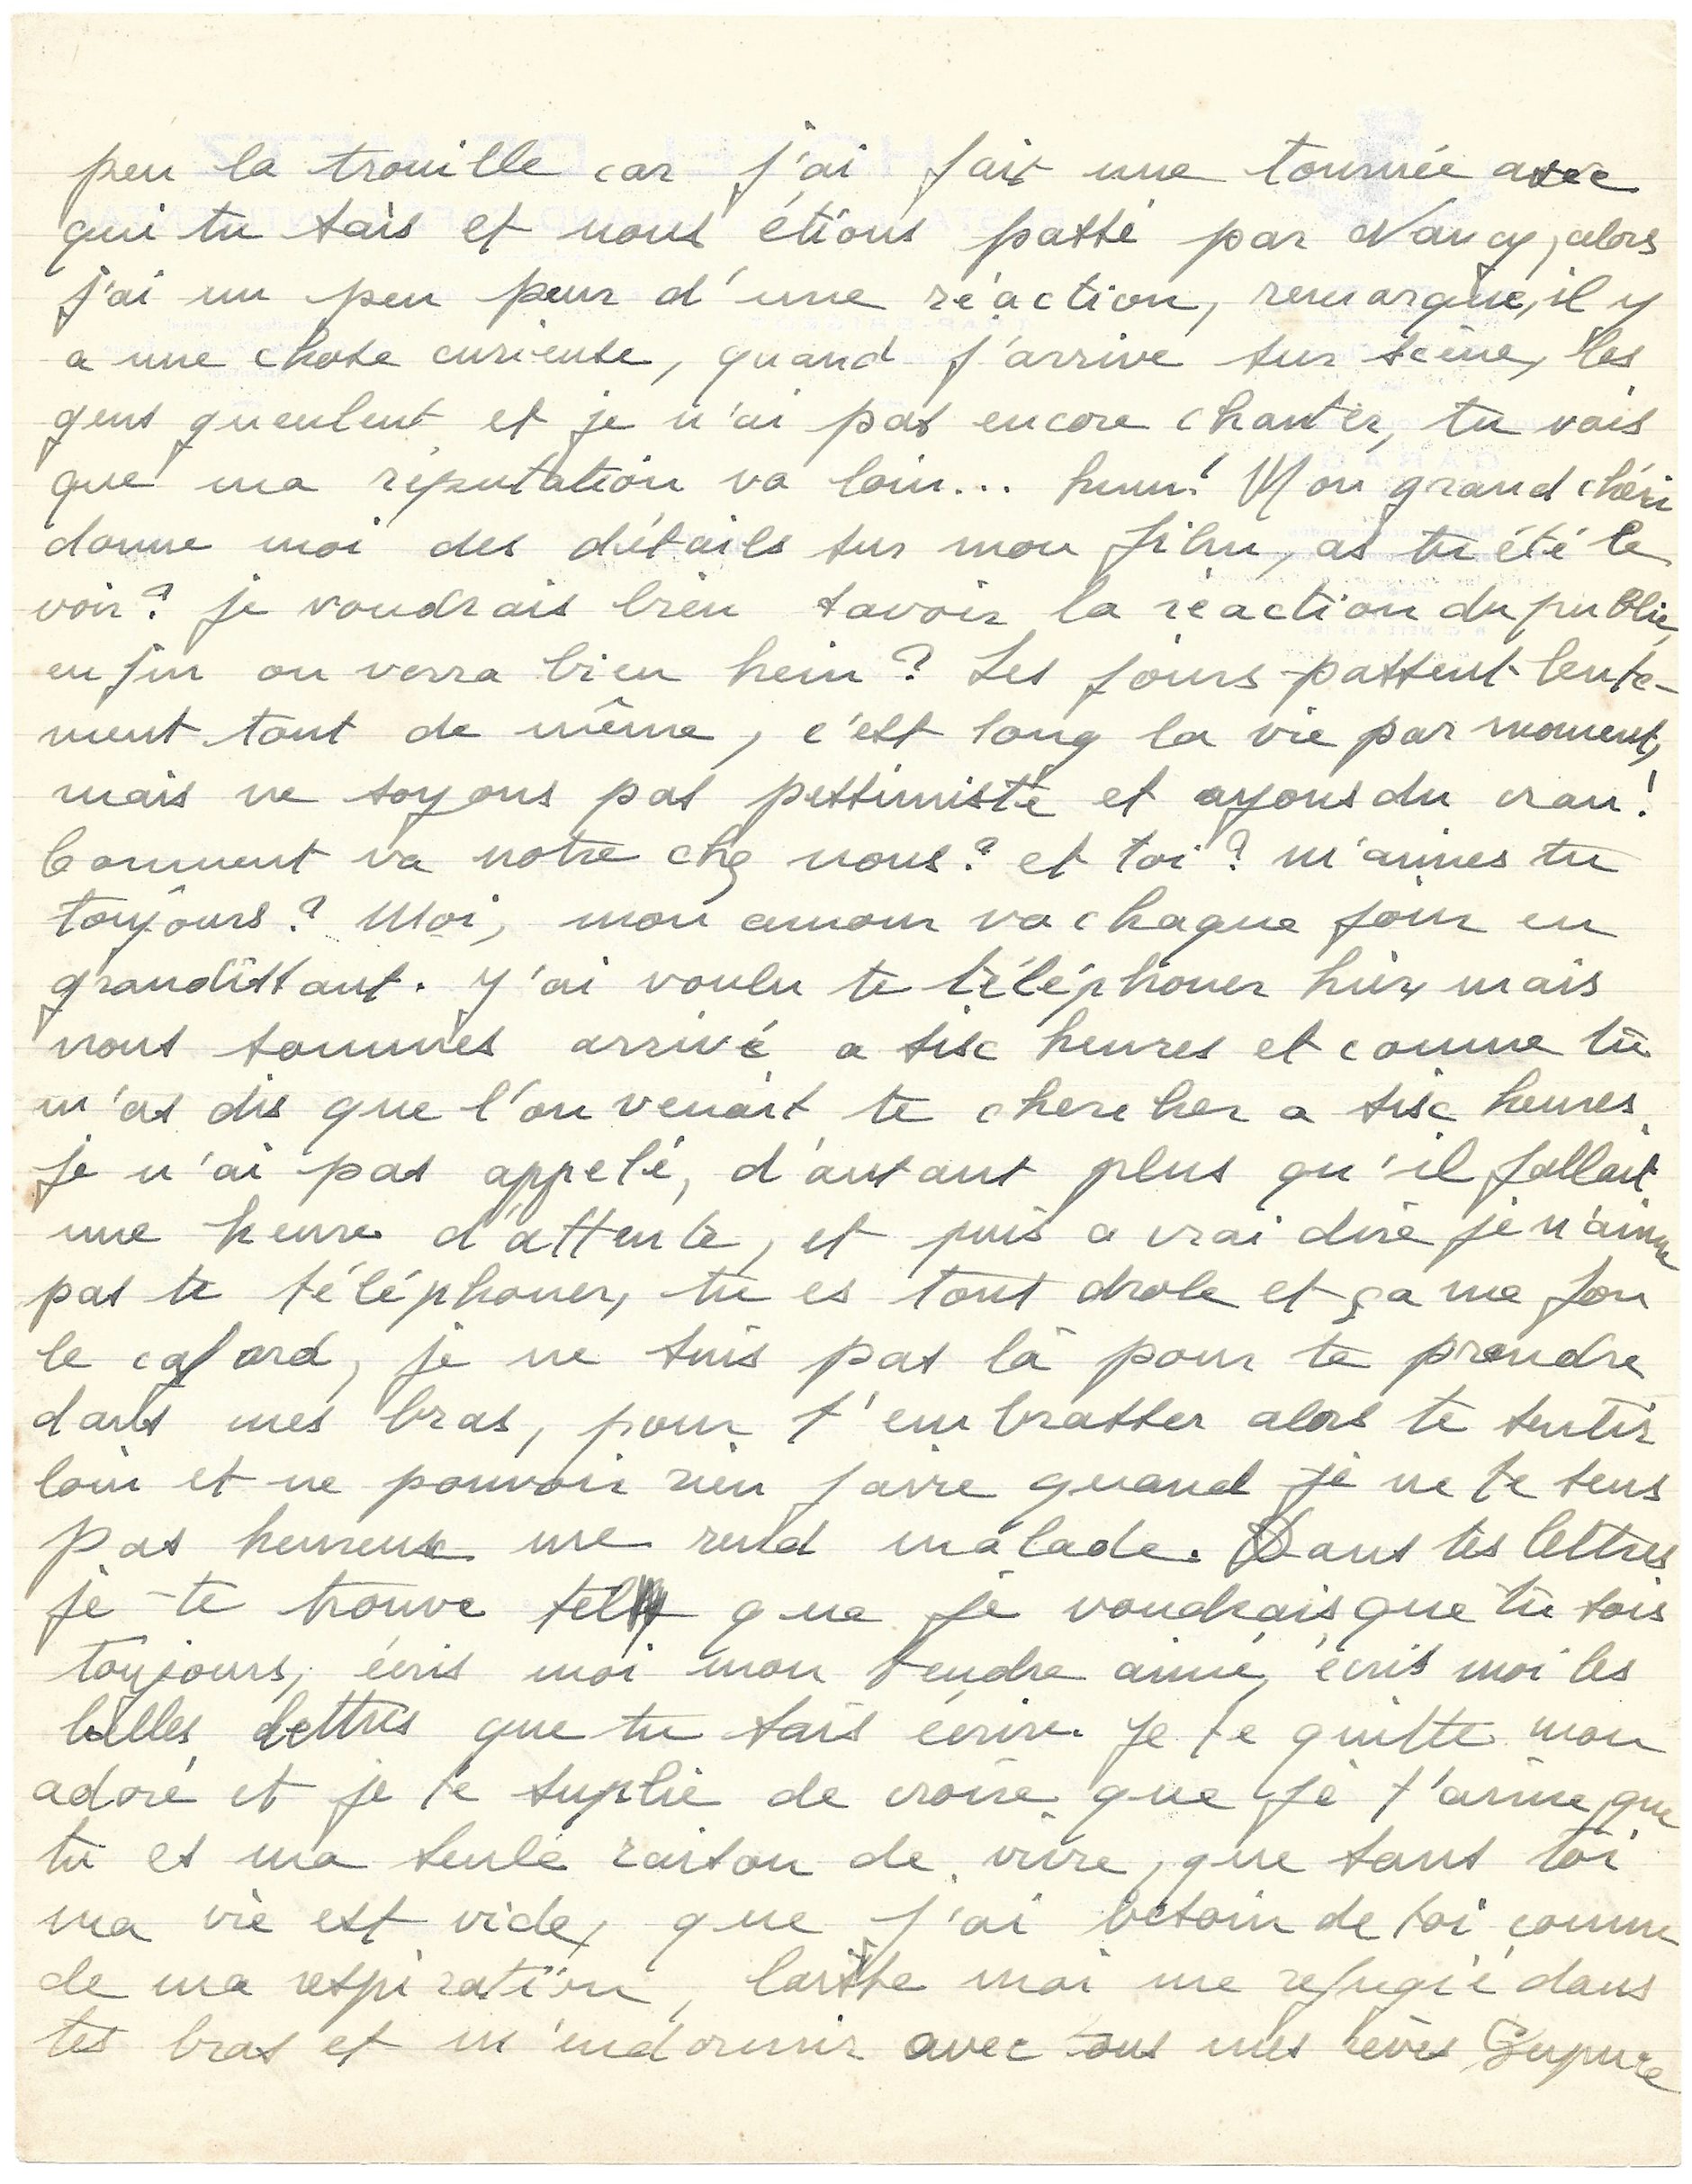 peu la trouille car j'ai fait une tournée avec
qui tu sais et nous étions passé par Nancy, alors
j'ai un peu peur d'une réaction, remarque, il y
a une chose curieuse, quand j'arrive sur scène, les
gens gueulent et je n'ai pas encore chanter, tu vois
que ma réputation va loin... hum! Mon grand chéri
donne moi des détails sur mon film, as tu été le
voir? je voudrais bien savoir la réaction du public,
enfin on verra bien hein? Les jours passent lente-
ment tout de même, c'est long la vie par moment,
mais ne soyons pas pessimiste et ayons du cran!
Comment va notre chez nous? et toi? m'aimes tu
toujours? Moi, mon amour va chaque jour en
grandissant. J'ai voulu te téléphoner hier, mais
nous sommes arrivé a sisc heures et comme tu
m'as dis que l'on venait te chercher a sisc heures
je n'ai pas appelé, d'autant plus qu'il fallait
une heure d'attente, et puis a vrai dire je n'aime
pas te téléphoner, tu es tout drole et ça me fou
le cafard, je ne suis pas là pour te prendre
dans mes bras, pour t'embrasser alors te sentir
loin et ne pouvoir rien faire quand je ne te sens
pas heureux me rend malade. Dans tes lettres
je te trouve tel que je voudrais que tu sois
toujours, écris moi mon tendre aimé, écris moi les
belles lettres que tu sais écrire. Je te quitte mon
adoré et je te suplie de croire que je t'aime, que
tu es ma seule raison de vivre, que sans toi
ma vie est vide, que j'ai besoin de toi comme
de ma respiration, laisse moi me refugié dans
tes bras et m'endormir avec tous mes rêves